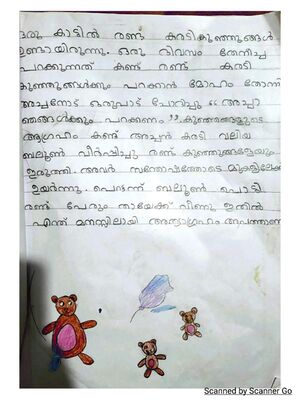 ഒരു കാട്ടിൽ രണ്ടു കരടികുഞ്ഞുങ്ങൾ
ഉണ്ടായിരുന്നു. ഒരു ദിവസം തേനീച്ച
പറക്കുന്നത് കണ്ട് രണ്ട് കരടി
കുഞ്ഞുങ്ങൾക്കും പറക്കാൻ മോഹം തോന്നി
അച്ഛനോട് ഒരുപാട് ചോദിച്ചു “ അച്ഛാ
ഞങ്ങൾക്കും പറക്കണം ”. കുഞ്ഞങ്ങളുടെ
ആഗ്രഹം കണ്ട് അച്ഛൻ കരടി വലിയ
ബലൂൺ വീർപ്പിച്ചു രണ്ട് കുഞ്ഞുങ്ങളേയും
ഇരുത്തി. അവർ സന്തോഷത്തോടെ മുകളിലേക്ക്
ഉയർന്നു. പെട്ടന്ന് ബലൂൺ പൊട്ടി
രണ്ട് പേരും താഴേക്ക് വീണു ഇതിൽ
എന്ത് മനസ്സിലായി അത്യാഗ്രഹം അപത്താണ്
Scanned by Scanner Go